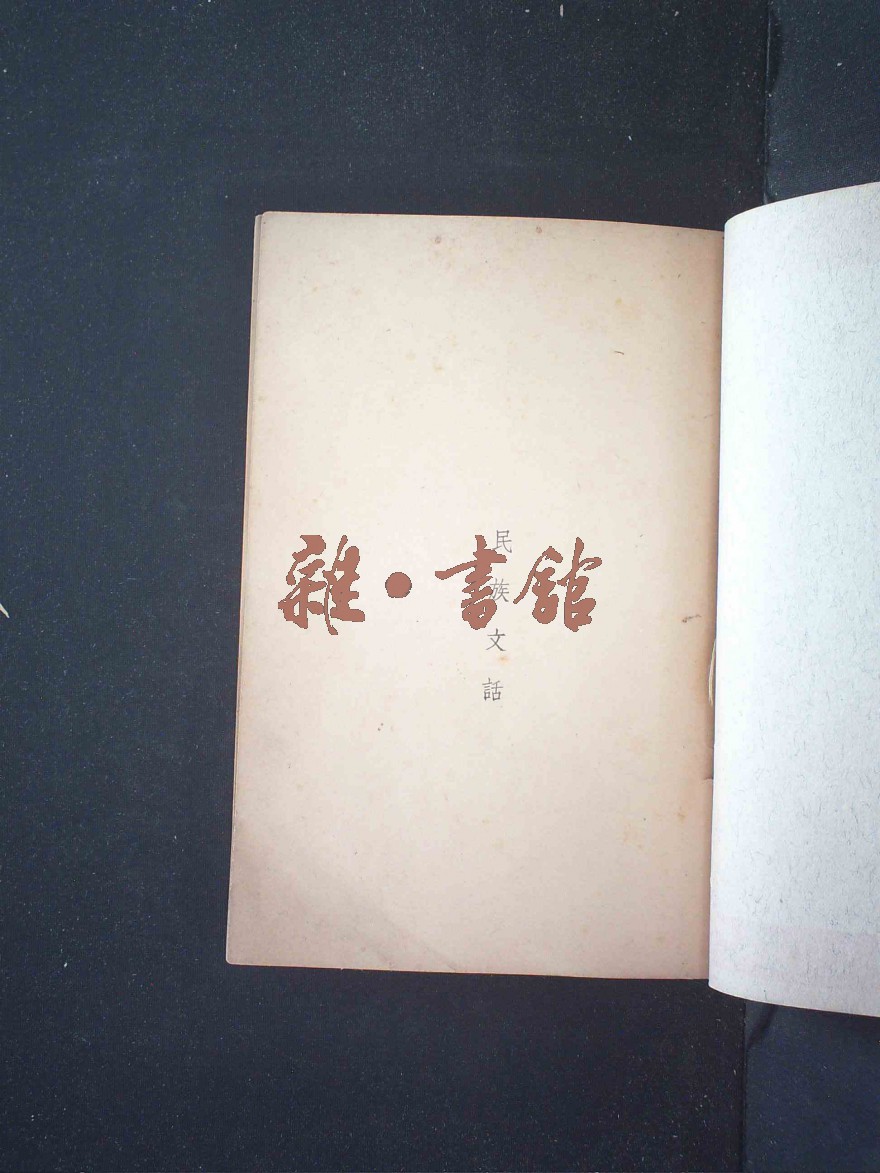 民族文話
雜·書館